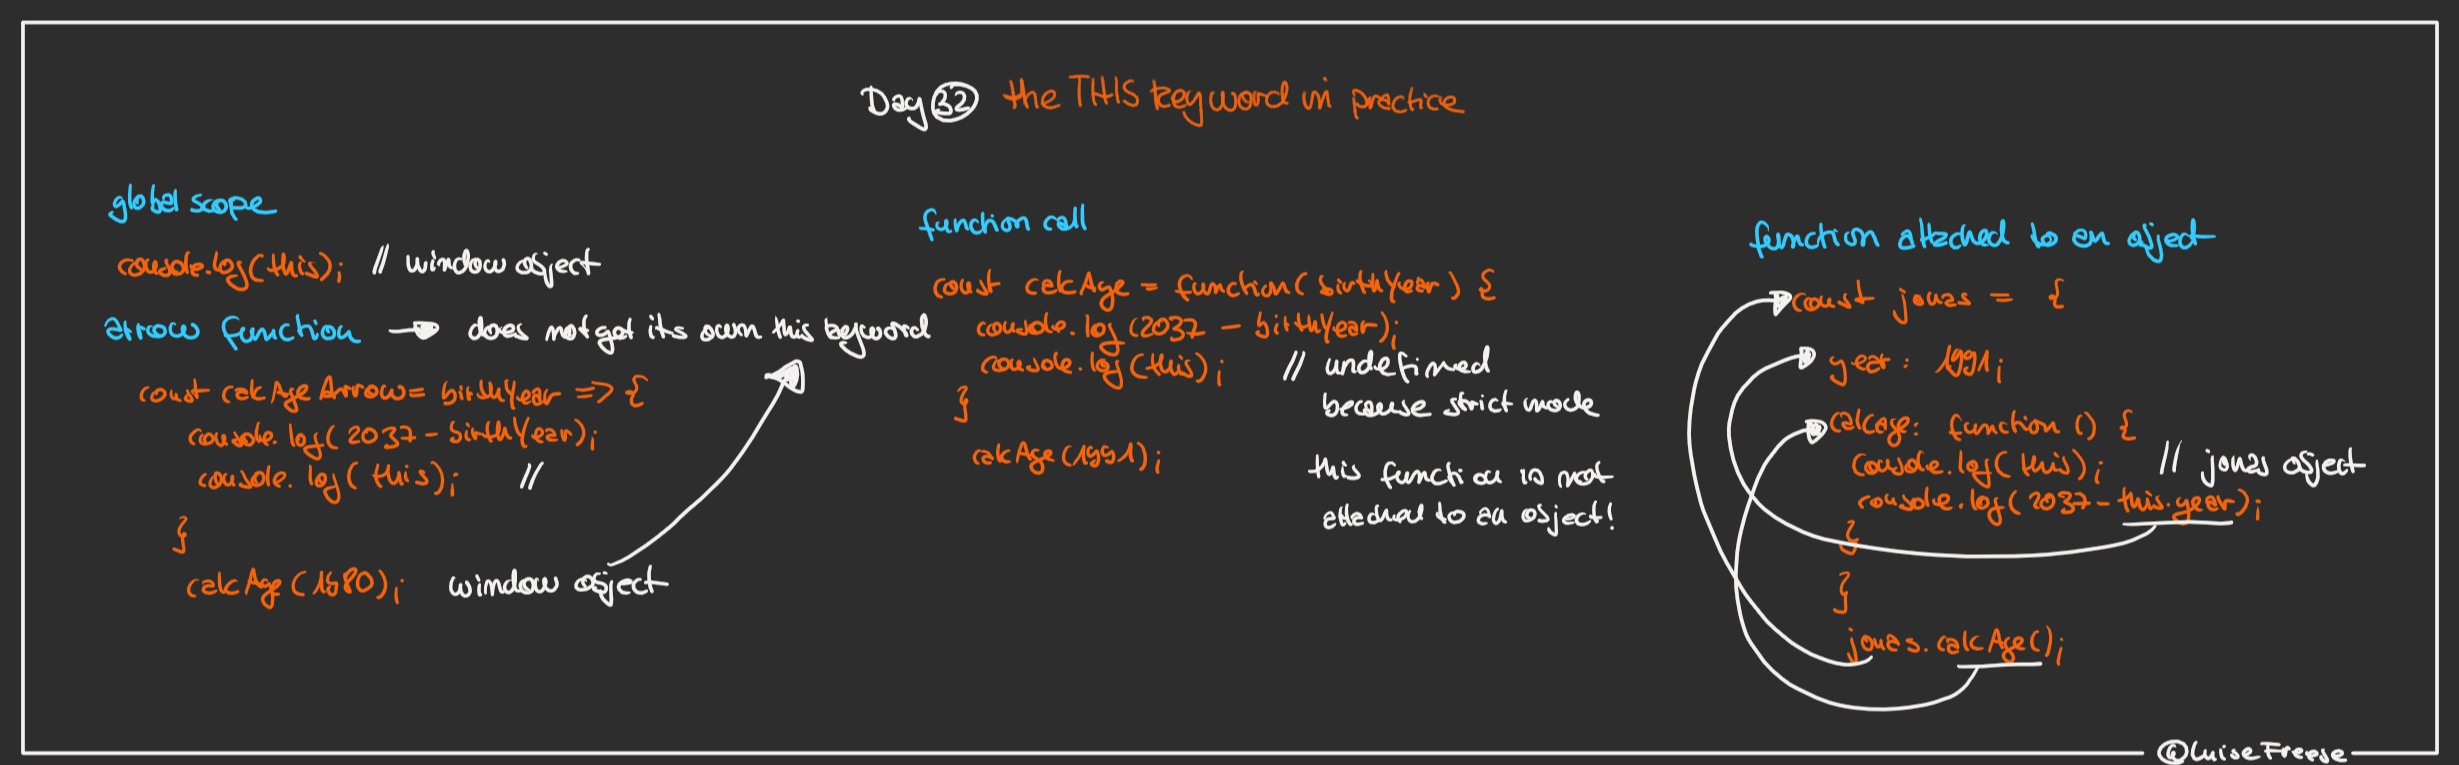 Day 32 the THIS keyword in practice
global scope
console.log(this); // window object
arrow function → does not get its own this keyword
const calcAgeArrow = birthYear => {
console.log(2037 - birthYear);
console.log(this); //
}
calcAge(1980); window object
function call
const calcAge = function(birthYear) {
console.log(2037 - birthYear);
console.log(this); // undefined
because strict mode
}
calcAge(1991);
this function is not
attached to an object!
function attached to an object
const jonas = {
year: 1991;
calcage: function () {
console.log(this); // jonas object
console.log(2037 - this.year);
}
}
jonas.calcAge();
@LuiseFreese